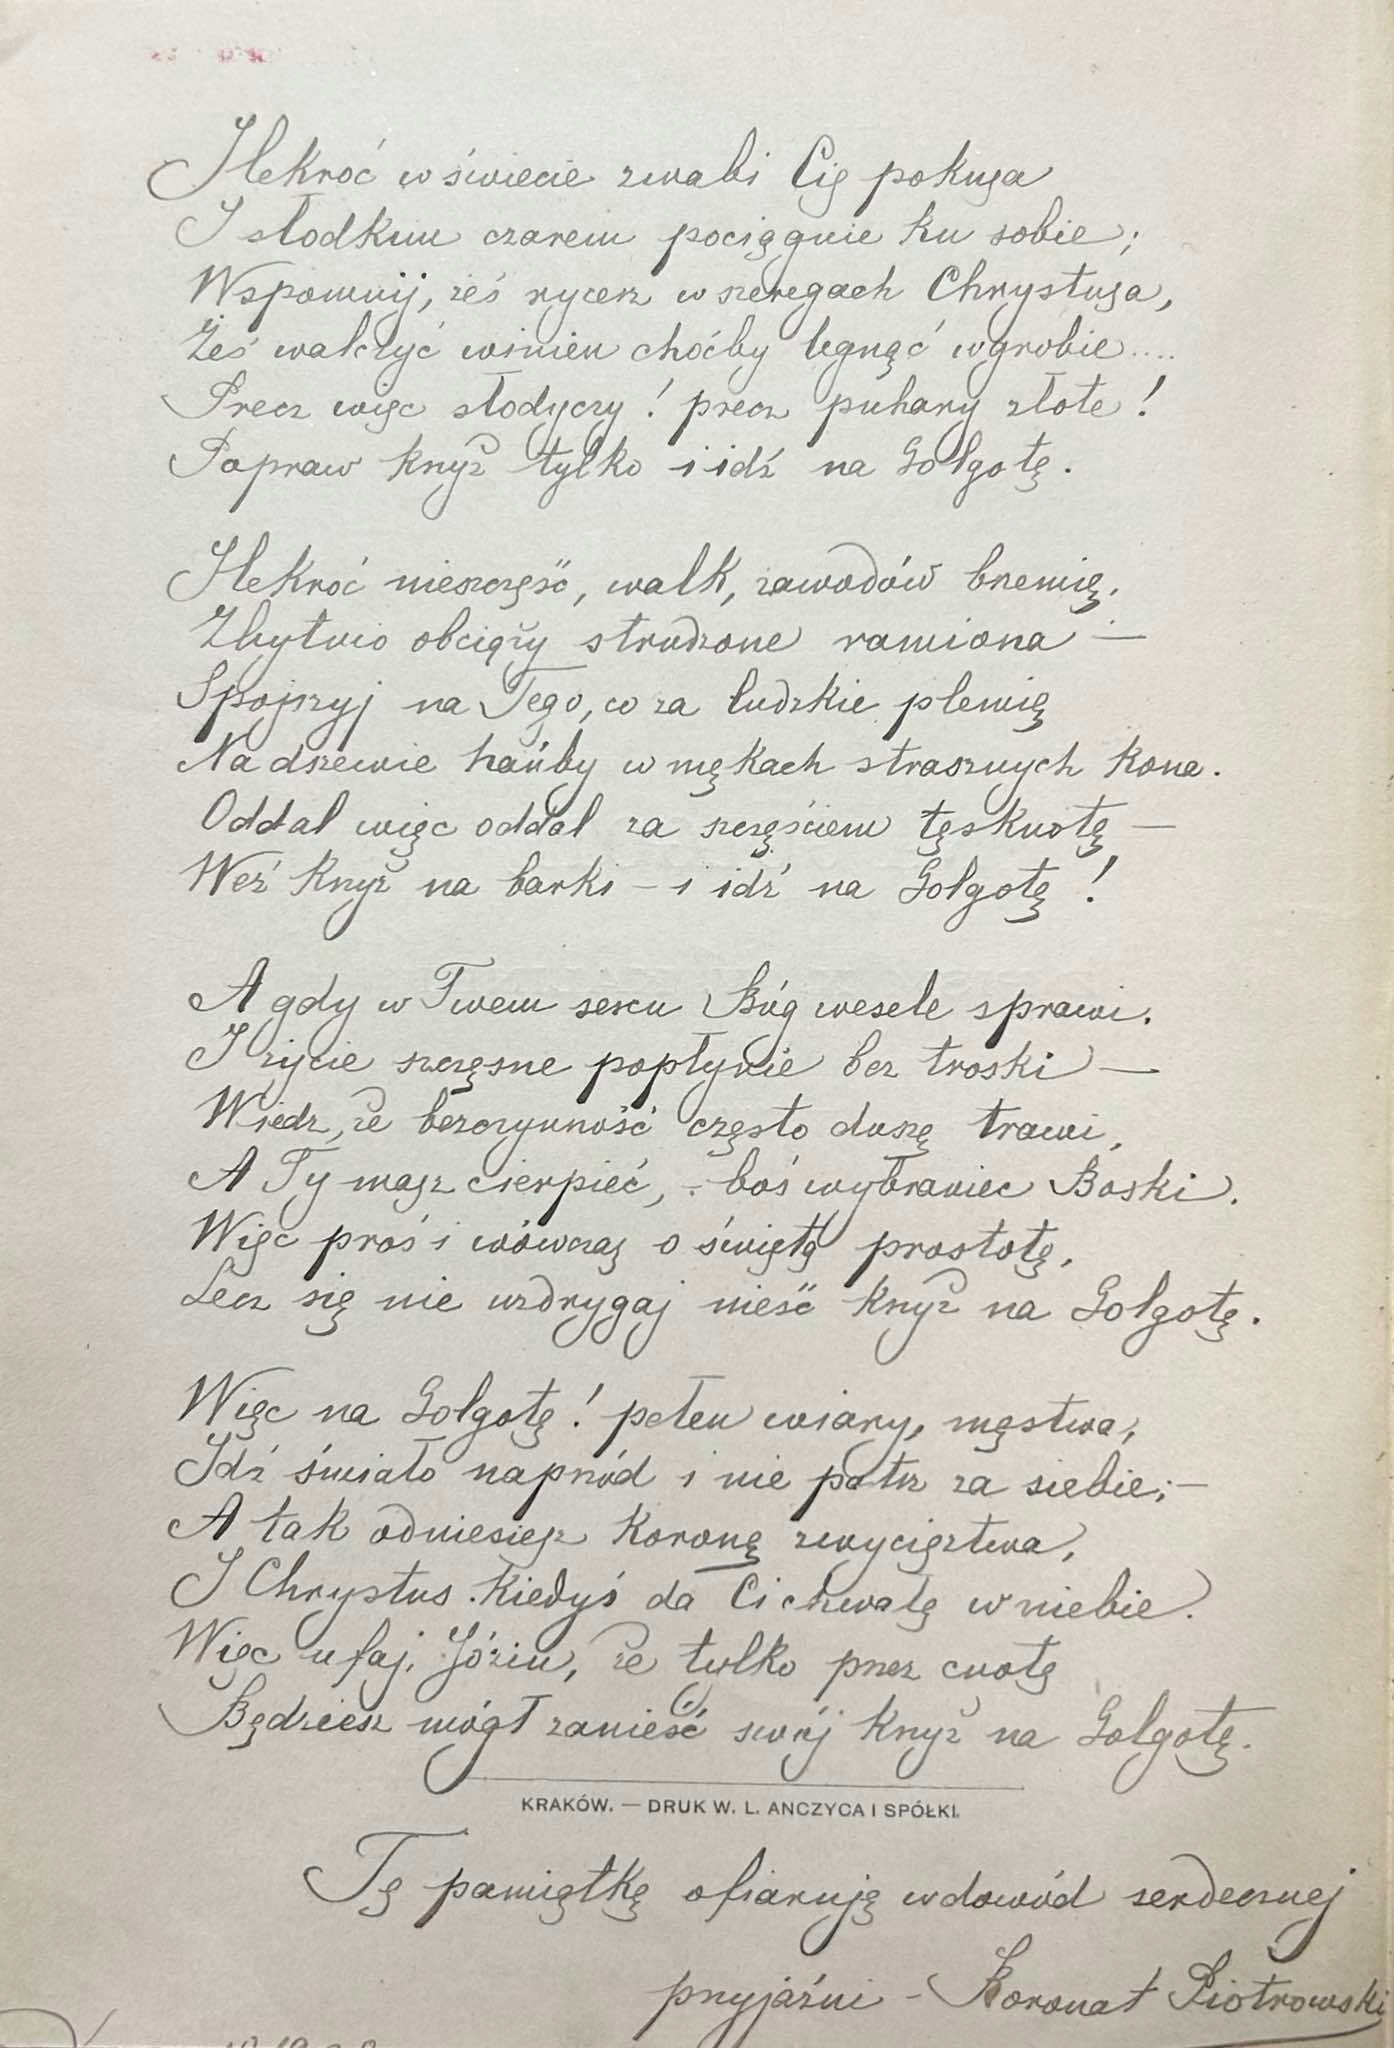 Ilekroć w świecie zwabi Cię pokusa
I słodkim czarem pociągnie ku sobie;
Wspomnij, żeś rycerz w szeregach Chrystusa,
Żeś walczyć winien choćby legnąć w grobie....
Precz więc słodyczy! precz puhary złote!
Popraw krzyż tylko i idź na Golgotę.
Ilekroć nieszczęść, walk, zawodów brzemię,
Zbytnio obciąży strudzone ramiona —
Spojrzyj na Tego, co za ludzkie plemię
Na drzewie hańby w mękach strasznych kona.
Oddal więc oddal za szczęściem tęsknotę —
Weź krzyż na barki – i idź na Golgotę!
A gdy w Twem sercu Bóg wesele sprawi,
I życie szczęsne popłynie bez troski —
Wiedz, że bezczynność często duszę trawi,
A Ty masz cierpieć, - boś wybraniec Boski.
Więc proś i wówczas o świętą prostotę,
Lecz się nie wzdrygaj nieść krzyż na Golgotę.
Więc na Golgotę! pełen wiary, męstwa,
Idź śmiało naprzód i nie patrz za siebie; —
A tak odniesiesz koronę zwycięztwa,
I Chrystus kiedyś da Ci chwałę w niebie.
Więc ufaj, Józiu, że tylko przez cnotę
Będziesz mógł zanieść swój krzyż na Golgotę.
KRAKÓW. — DRUK W. L. ANCZYCA I SPÓŁKI.
Tę pamiątkę ofiaruję w dowód serdecznej
przyjaźni - Koronat Piotrowski